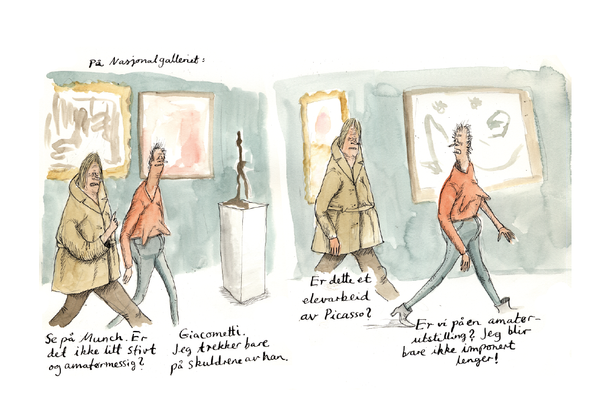 På Nasjonalgalleriet:
Se på Munch. Er
det ikke litt stivt
og amatørmessig?
Giacometti.
Jeg trekker bare
på skuldrene av han.
Er dette et
elevarbeid
av Picasso?
Er vi på en amatør-
utstilling? Jeg blir
bare ikke imponert
lenger!